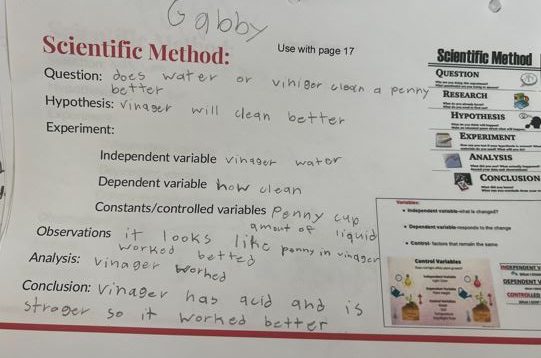 Gabby
Scientific Method:
Use with page 17
Question: does water or viniger clean a penny
better
Hypothesis: vinager will clean better
Experiment:
Independent variable vinager water
Dependent variable how clean
Constants/controlled variables penny cup
amount of liquid
Observations it looks like penny in vinager
worked betted
Analysis: vinager worked
Conclusion: vinager has acid and is
stroger so it worked better
Scientific Method
QUESTION
RESEARCH
HYPOTHESIS
EXPERIMENT
ANALYSIS
CONCLUSION
Variables:
Independent variable-what is changed?
Dependent variable-responds to the change
Control- factors that remain the same
Control Variables
INDEPENDENT V
DEPENDENT V
CONTROLLED